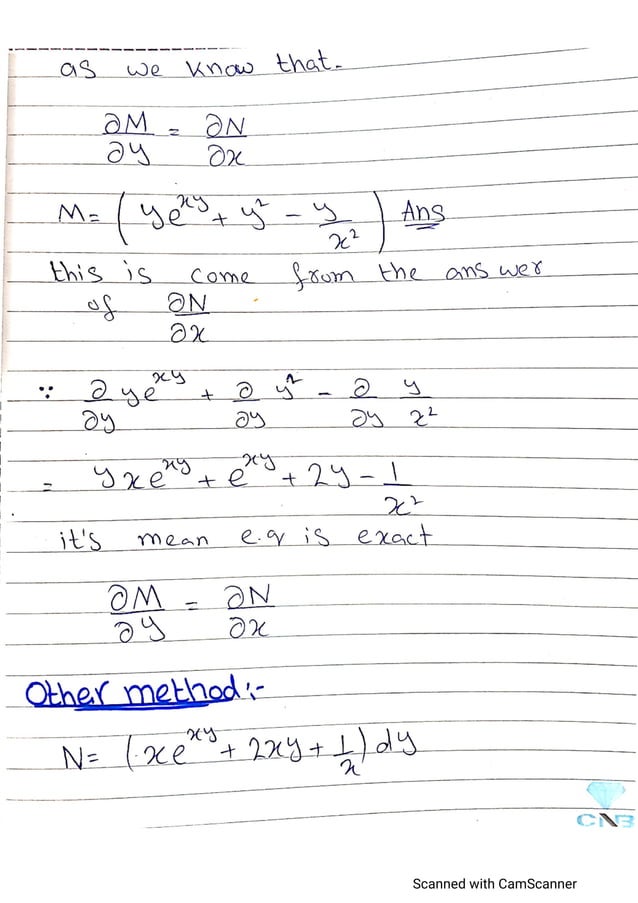 as we know that.
∂M/∂y = ∂N/∂x
M= (ye^xy + y² - y/x²) Ans
this is come from the answer
of ∂N/∂x
∵ ∂/∂y ye^xy + ∂/∂y y² - ∂/∂y y/x²
= yxe^xy + e^xy + 2y - 1/x²
it's mean e.q is exact
∂M/∂y = ∂N/∂x
Other method:-
N= (xe^xy + 2xy + 1/x) dy
CNB
Scanned with CamScanner